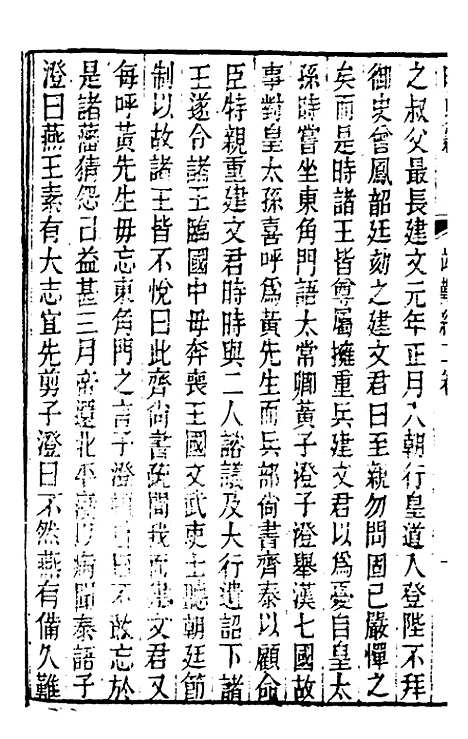 之叔父最長建文元年正月入朝行皇道入登陛不拜
御史曾鳳韶廷劾之建文君曰至親勿問固已嚴憚之
矣而是時諸王皆尊屬擁重兵建文君以爲憂自皇太
孫時嘗坐東角門語太常卿黃子澄子澄舉漢七國故
事對皇太孫喜呼爲黃先生而兵部尚書齊泰以顧命
臣特親重建文君時時與二人諮議及大行遺詔下諸
王遂令諸王臨國中毋奔喪王國文武吏士聽朝廷節
制以故諸王皆不悅曰此齊尚書疏間我而建文君又
每呼黃先生毋忘東角門之言子澄頓首曰不敢忘於
是諸藩猜怨已益甚三月還北平以病聞泰語子
澄曰燕王素有大志宜先剪子澄曰不然燕有備久難